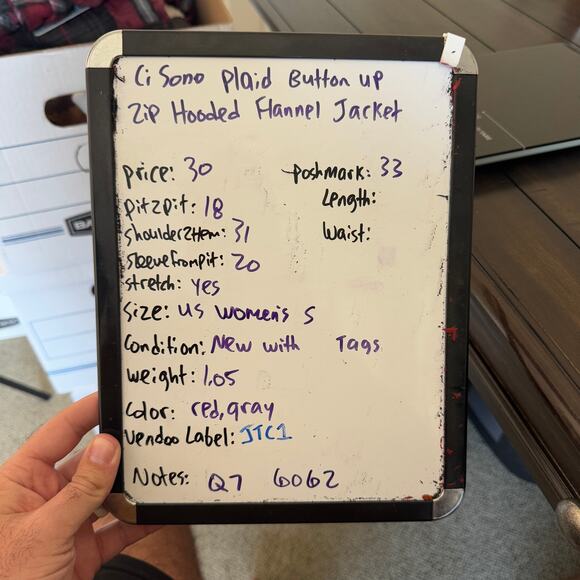 Ci Sono Plaid Button up
Zip Hooded Flannel Jacket
price: 30
poshmark: 33
Length:
pit2pit: 18
shoulder2Hem: 31
Waist:
sleevefrompit: 20
stretch: yes
Size: US Women's S
Condition: New with Tags
Weight: 1.05
Color: red, gray
Vendoo Label: JTC1
Notes: Q7 6062